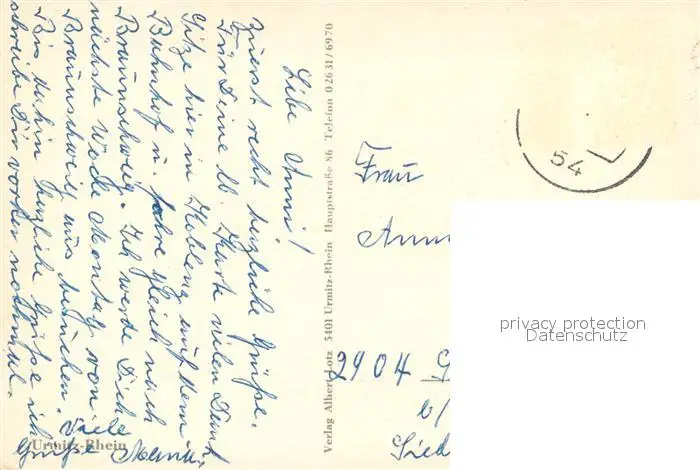 Liebe Anni!
Zuerst recht herzliche Grüße.
Für Deine lb. Karte vielen Dank
Sitze hier in Koblenz auf dem
Bahnhof u. fahre gleich nach
Braunschweig. Ich werde Dich
nächste Woche Montag von
Braunschweig aus besuchen.
Bis dahin herzliche Grüße ich
schreibe Dir vorher nochmal.
Viele
Grüße
Urmitz-Rhein
Verlag Albert Lotz 5401 Urmitz-Rhein Hauptstraße 86 Telefon 02631/6970
54
Frau
2904
b/
privacy protection
Datenschutz